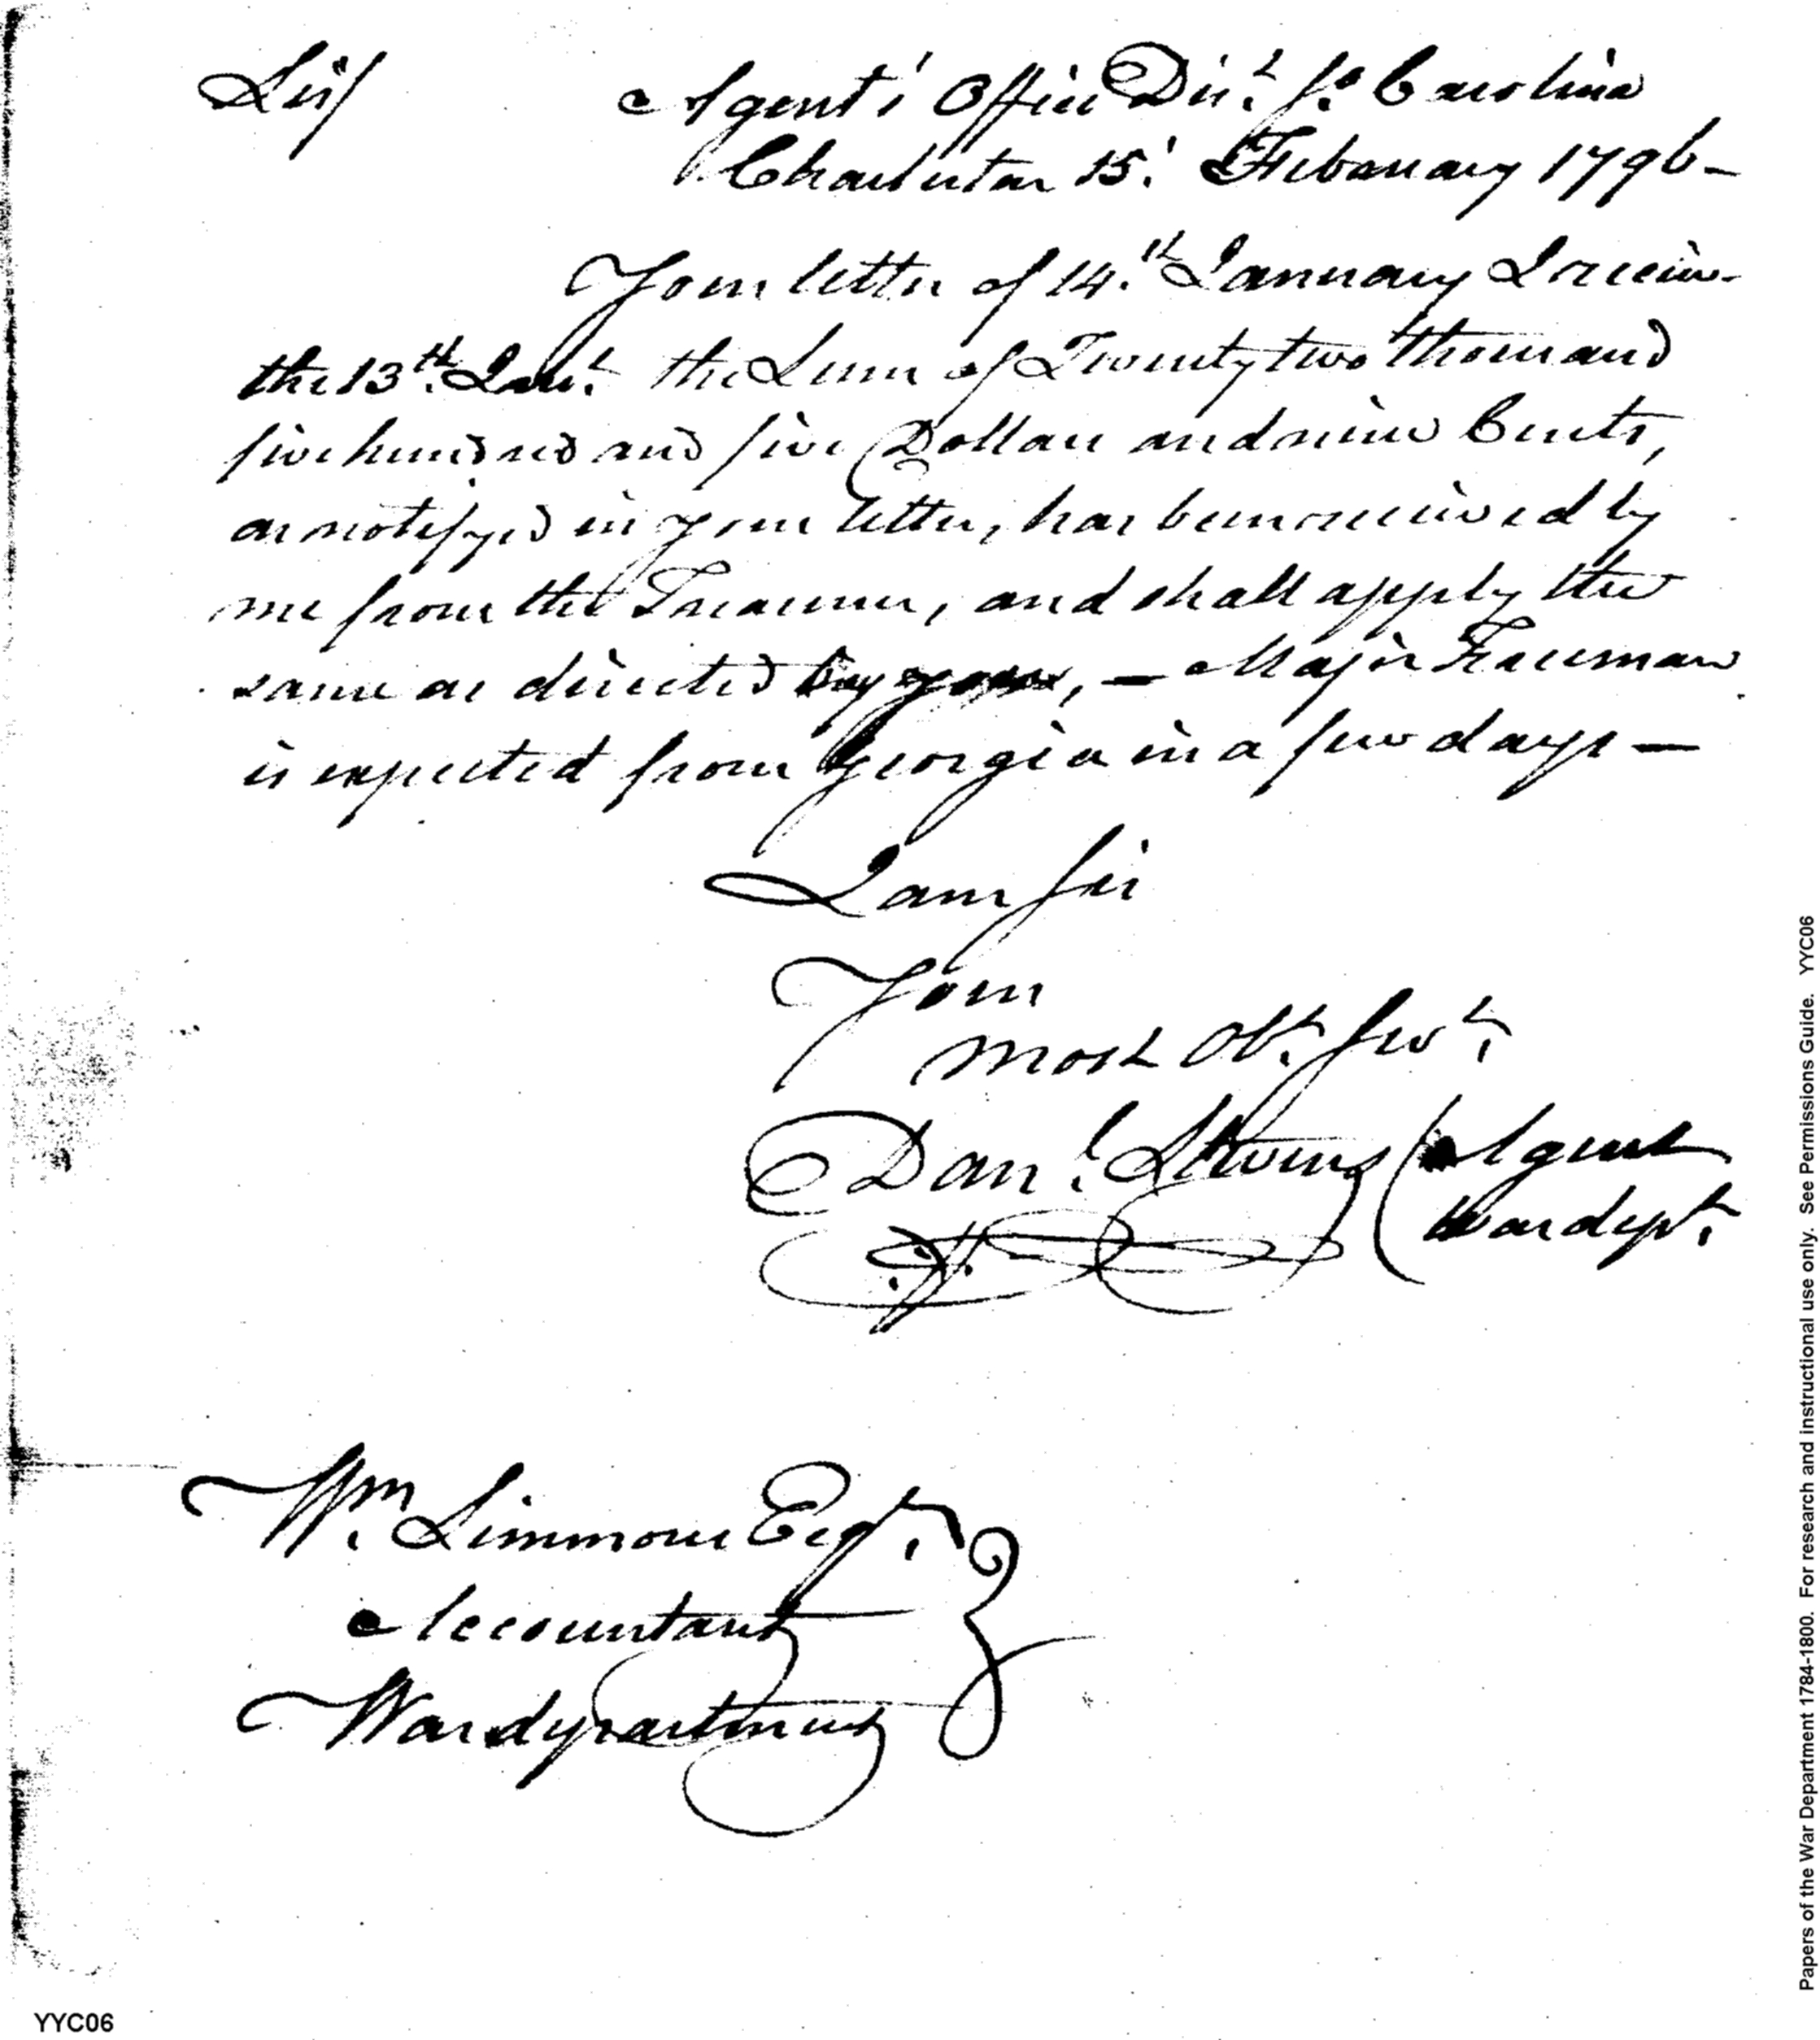 Sir/
Agent's Office Dist. So. Carolina
Charleston 15. February 1796 -
Your letter of 14.th January I receiv-
the 13th. Inst. the Sum of Twenty two thousand
five hundred and five Dollars and nine Cents,
as notifyed in your letter, has been received by
me from the Treasurer, and shall apply the
same as directed by you, — Major Freeman
is expected from Georgia in a few days —
I am Sir
Your
most Obt. Servt.
Danl. Stevens Agent
War dept.
Wm. Simmons Esqr.
Accountant
War department
YYC06
Papers of the War Department 1784-1800. For research and instructional use only. See Permissions Guide. YYC06